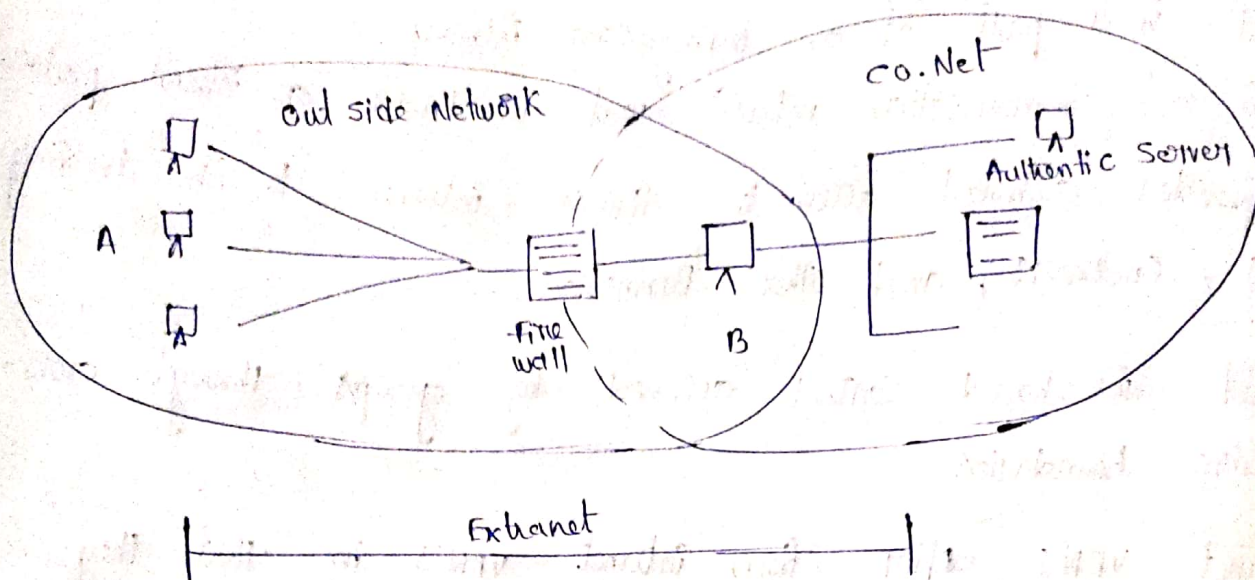 co.Net
out side Network
Authentic Server
A
fire
wall
B
Extranet